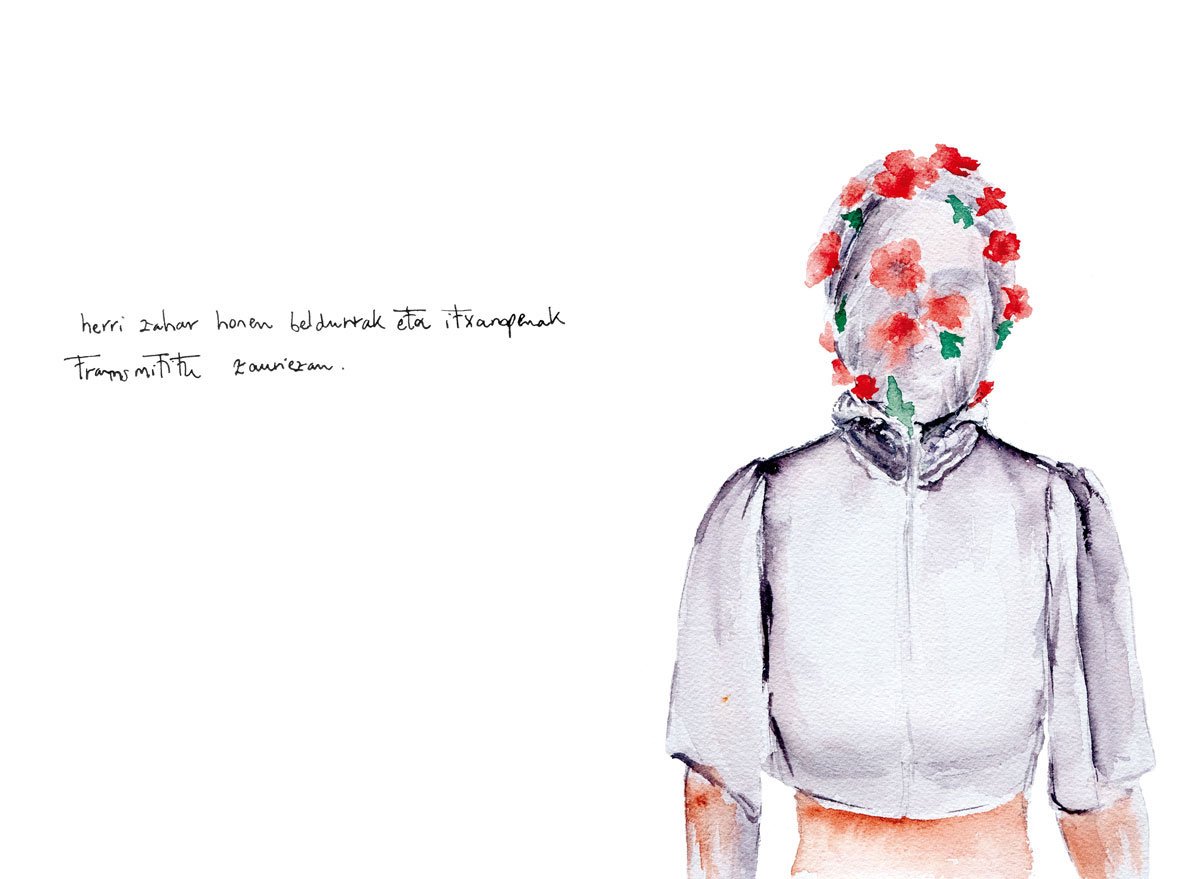 herri zahar honen beldurrak eta itxaropenak
transmititu zauriezan.